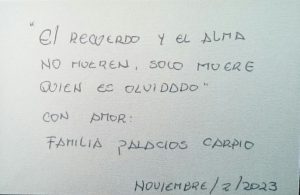 "El RECUERDO Y EL ALMA
NO MUEREN, SOLO MUERE
QUIEN ES OLVIDADO"
CON AMOR:
FAMILIA PALACIOS CARPIO
NOVIEMBRE/2/2023